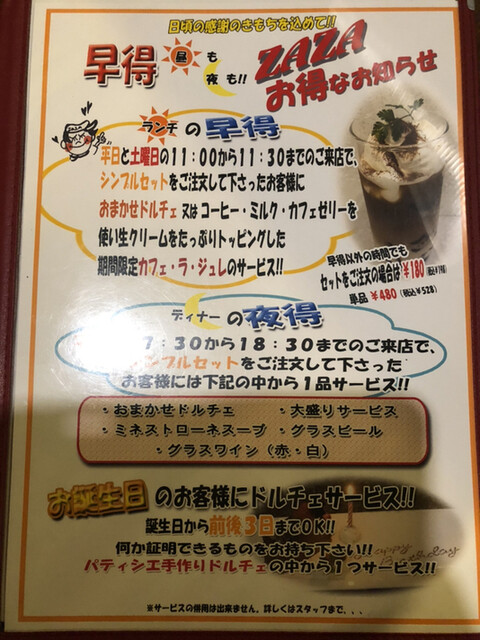 日頃の感謝のきもちを込めて!!
早得 昼も
夜も!!
ZAZA
お得なお知らせ
ランチの早得
平日と土曜日の11:00から11:30までのご来店で、
シンプルセットをご注文して下さったお客様に
おまかせドルチェ 又は コーヒー・ミルク・カフェゼリーを
使い生クリームをたっぷりトッピングした
期間限定カフェ・ラ・ジュレのサービス!!
早得以外の時間でも
セットをご注文の場合は ¥180
単品 ¥480 (税込¥528)
ディナーの夜得
7:30から18:30までのご来店で、
シンプルセットをご注文して下さった
お客様には下記の中から1品サービス!!
・おまかせドルチェ ・大盛りサービス
・ミネストローネスープ ・グラスビール
・グラスワイン(赤・白)
お誕生日のお客様にドルチェサービス!!
誕生日から前後3日までOK!!
何か証明できるものをお持ち下さい!!
パティシエ手作りドルチェの中から1つサービス!!
※サービスの併用は出来ません。詳しくはスタッフまで、、、